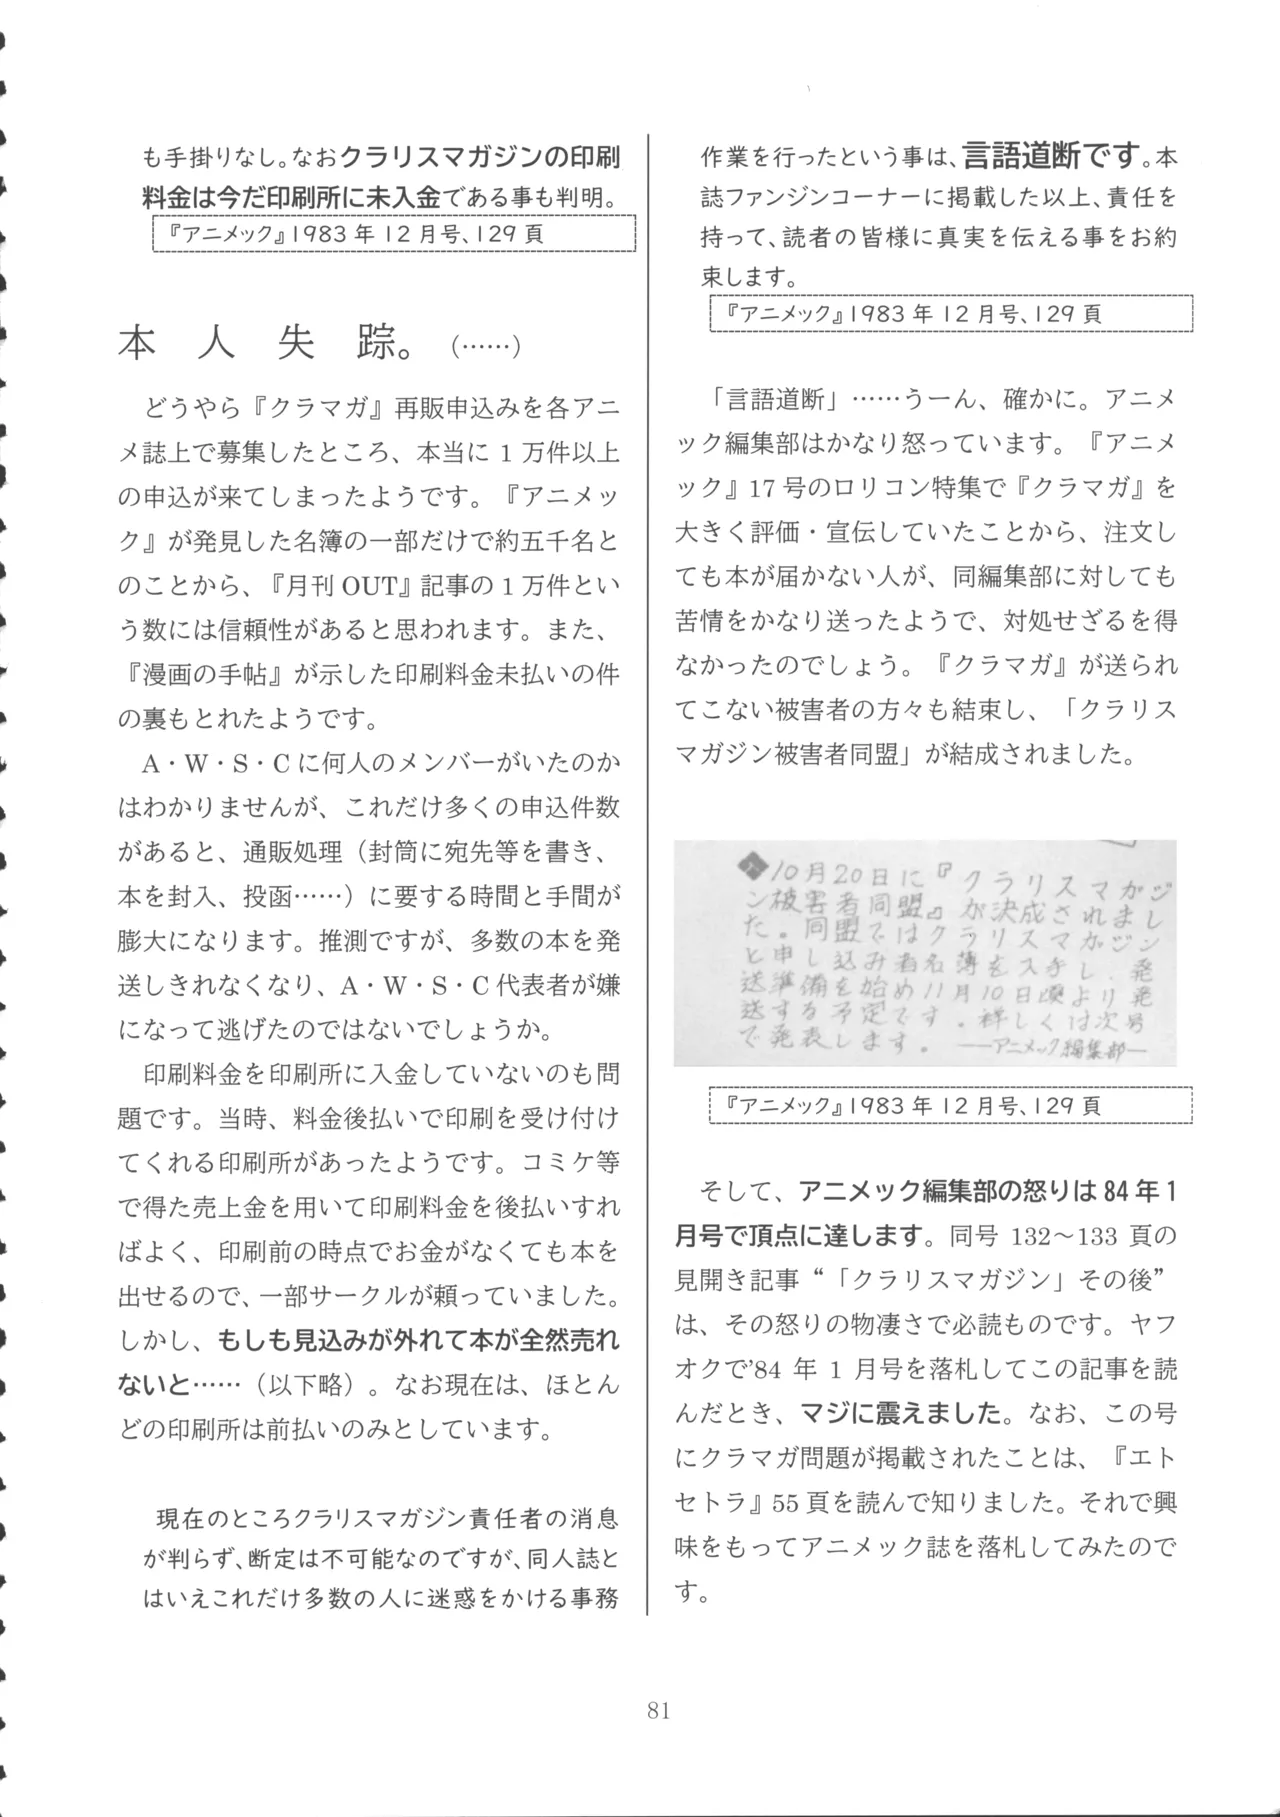 も手掛りなし。なおクラリスマガジンの印刷
料金は今だ印刷所に未入金である事も判明。
『アニメック』1983年12月号、129頁
本人失踪。(……)
どうやら『クラマガ』再販申込みを各アニ
メ誌上で募集したところ、本当に1万件以上
の申込が来てしまったようです。『アニメッ
ク』が発見した名簿の一部だけで約五千名と
のことから、『月刊OUT』記事の1万件とい
う数には信頼性があると思われます。また、
『漫画の手帖』が示した印刷料金未払いの件
の裏もとれたようです。
A・W・S・Cに何人のメンバーがいたのか
はわかりませんが、これだけ多くの申込件数
があると、通販処理（封筒に宛先等を書き、
本を封入、投函……）に要する時間と手間が
膨大になります。推測ですが、多数の本を発
送しきれなくなり、A・W・S・C代表者が嫌
になって逃げたのではないでしょうか。
印刷料金を印刷所に入金していないのも問
題です。当時、料金後払いで印刷を受け付け
てくれる印刷所があったようです。コミケ等
で得た売上金を用いて印刷料金を後払いすれ
ばよく、印刷前の時点でお金がなくても本を
出せるので、一部サークルが頼っていました。
しかし、もしも見込みが外れて本が全然売れ
ないと……（以下略）。なお現在は、ほとん
どの印刷所は前払いのみとしています。
現在のところクラリスマガジン責任者の消息
が判らず、断定は不可能なのですが、同人誌と
はいえこれだけ多数の人に迷惑をかける事務
作業を行ったという事は、言語道断です。本
誌ファンジンコーナーに掲載した以上、責任を
持って、読者の皆様に真実を伝える事をお約
束します。
『アニメック』1983年12月号、129頁
「言語道断」……うーん、確かに。アニメ
ック編集部はかなり怒っています。『アニメ
ック』17号のロリコン特集で『クラマガ』を
大きく評価・宣伝していたことから、注文し
ても本が届かない人が、同編集部に対しても
苦情をかなり送ったようで、対処せざるを得
なかったのでしょう。『クラマガ』が送られ
てこない被害者の方々も結束し、「クラリス
マガジン被害者同盟」が結成されました。
◆10月20日に『クラリスマガジ
ン被害者同盟』が決成されまし
た。同盟ではクラリスマガジン
と申し込み者名簿を入手し、発
送準備を始め11月10日頃より発
送する予定です。詳しくは次号
で発表します。—アニメック編集部—
『アニメック』1983年12月号、129頁
そして、アニメック編集部の怒りは84年1
月号で頂点に達します。同号132～133頁の
見開き記事“「クラリスマガジン」その後”
は、その怒りの物凄さで必読ものです。ヤフ
オクで'84年1月号を落札してこの記事を読
んだとき、マジに震えました。なお、この号
にクラマガ問題が掲載されたことは、『エト
セトラ』55頁を読んで知りました。それで興
味をもってアニメック誌を落札してみたので
す。
81